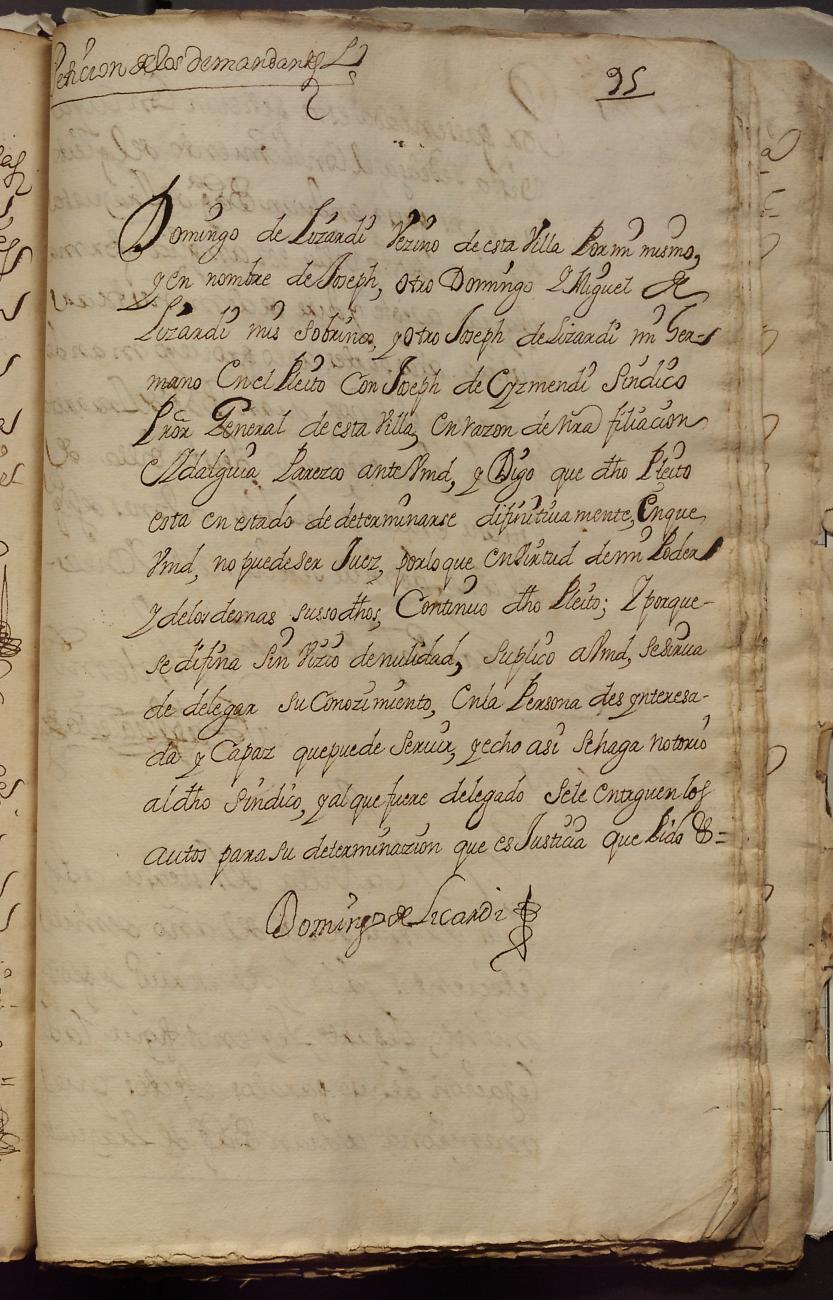 Peticion de los demandantes
95
Domingo de Lizardi Vezino de esta Villa Por mi mismo,
y en nombre de Joseph, otro Domingo Y Miguel de
Lizardi mis sobrinos, y otro Joseph de Lizardi mi her-
mano En el Pleito Con Joseph de Eyzmendi Sindico
Pror General de esta Villa, en razon de nra filiacion
e Ydalguia Parezco ante Vmd, y Digo que dho Pleito
esta en estado de determinarse difinitiuamente, En que
Vmd, no puede ser Juez, por lo que en Virtud de mi Poder
y de los demas susodhos, Continuo dho Pleito; Y porque
se difina sin Vizio de nulidad, suplico a Vmd, se sirua
de delegar su Conozimiento, En la Persona desynteresa-
da y Capaz que puede seruir, y echo asi se haga notorio
al dho sindico, y al que fuere delegado se le entreguen los
autos para su determinazion que es Justicia que Pido &=
Domingo de Licardi